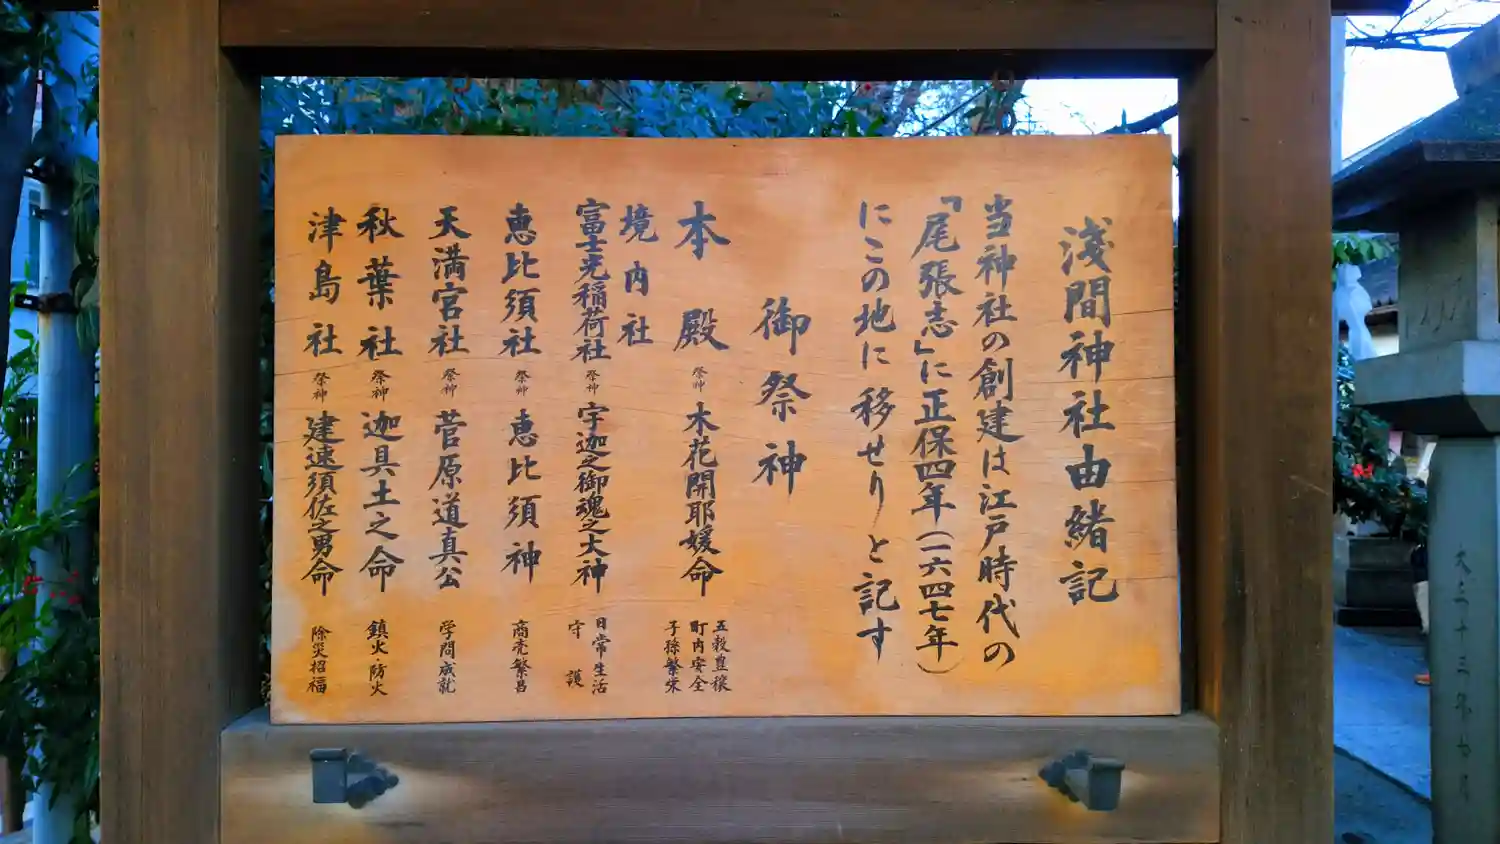 淺間神社由緒記
当神社の創建は江戸時代の
「尾張志」に正保四年(一六四七年)
にこの地に移せりと記す
御祭神
本殿 祭神 木花開耶媛命 五穀豊穣 町内安全 子孫繁栄
境内社
富士光稲荷社 祭神 宇迦之御魂之大神 日常生活 守護
恵比須社 祭神 恵比須神 商売繁昌
天満宮社 祭神 菅原道真公 学問成就
秋葉社 祭神 迦具土之命 鎮火・防火
津島社 祭神 建速須佐之男命 除災招福